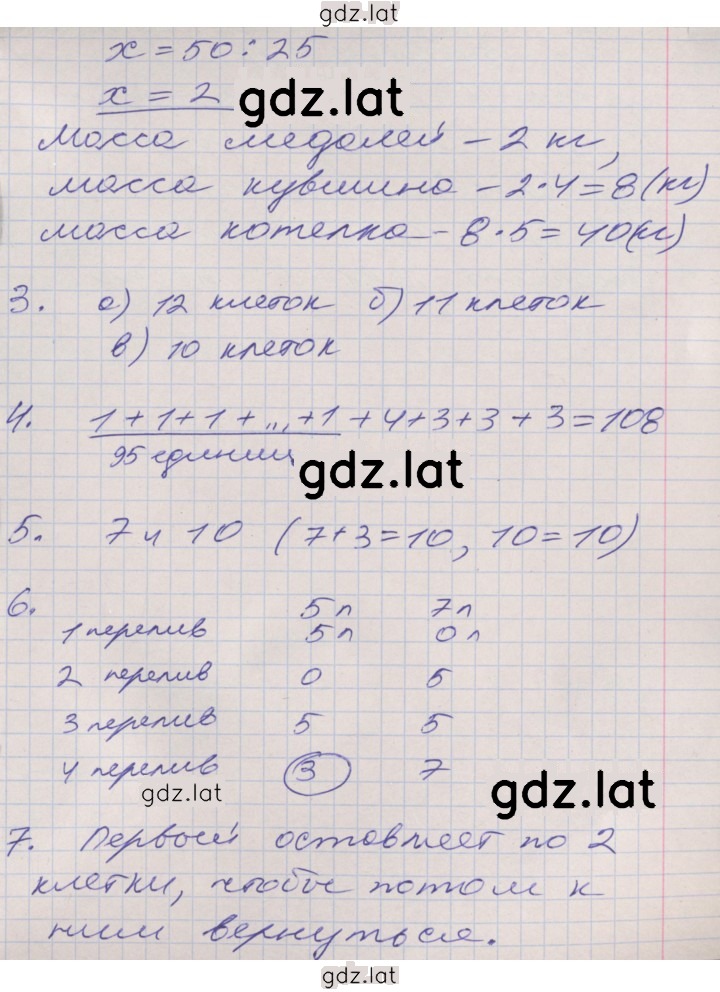 gdz.lat
x = 50 : 25
x = 2 gdz.lat
Масса медалей – 2 кг,
масса кувшина – 2·4=8(кг)
масса котелка – 8·5=40(кг)
3. а) 12 клеток б) 11 клеток
в) 10 клеток
4. 1+1+1+...+1+4+3+3+3=108
95 единиц gdz.lat
5. 7 и 10 (7+3=10, 10=10)
6. 5л 7л
1 перелив 5л 0л
2 перелив 0 5
3 перелив 5 5
4 перелив 3 7
gdz.lat gdz.lat
7. Первый оставляет по 2
клетки, чтобы потом к
ним вернуться.
gdz.lat